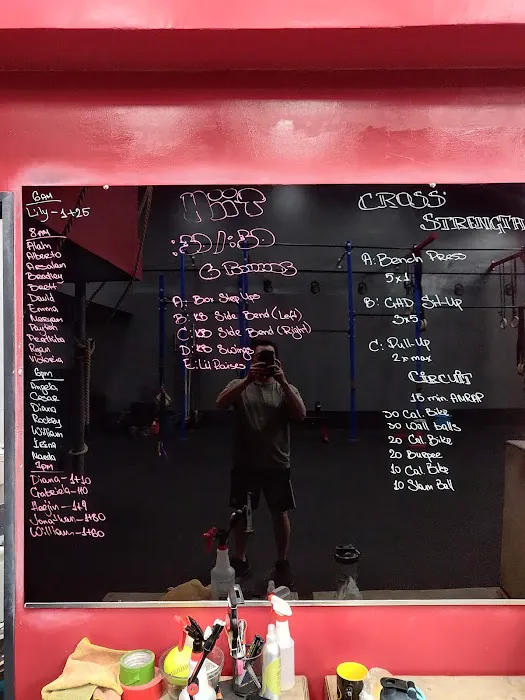 6am
Lily - 1+25
8am
Alain
Alberto
Arsalan
Bradley
Brett
David
Emma
Ryan
Victoria
6pm
Angela
Cesar
Diana
Rockey
William
Irina
7pm
Diana - 1+10
Gabriela - 110
Heejin - 1+9
Jonathan - 1+80
William - 1+60
HIIT
:30/:30
6 Rounds
A: Box Step Ups
B: KB Side Bend (Left)
C: KB Side Bend (Right)
D: KB Swings
E: Lil Raises
CROSS
STRENGTH
A: Bench Press
5x1
B: GHD Sit-Up
3x5
C: Pull-Up
2x max
CIRCUIT
15 min AMRAP
30 Cal. Bike
30 Wall balls
20 Cal. Bike
20 Burpee
10 Cal. Bike
10 Slam Ball